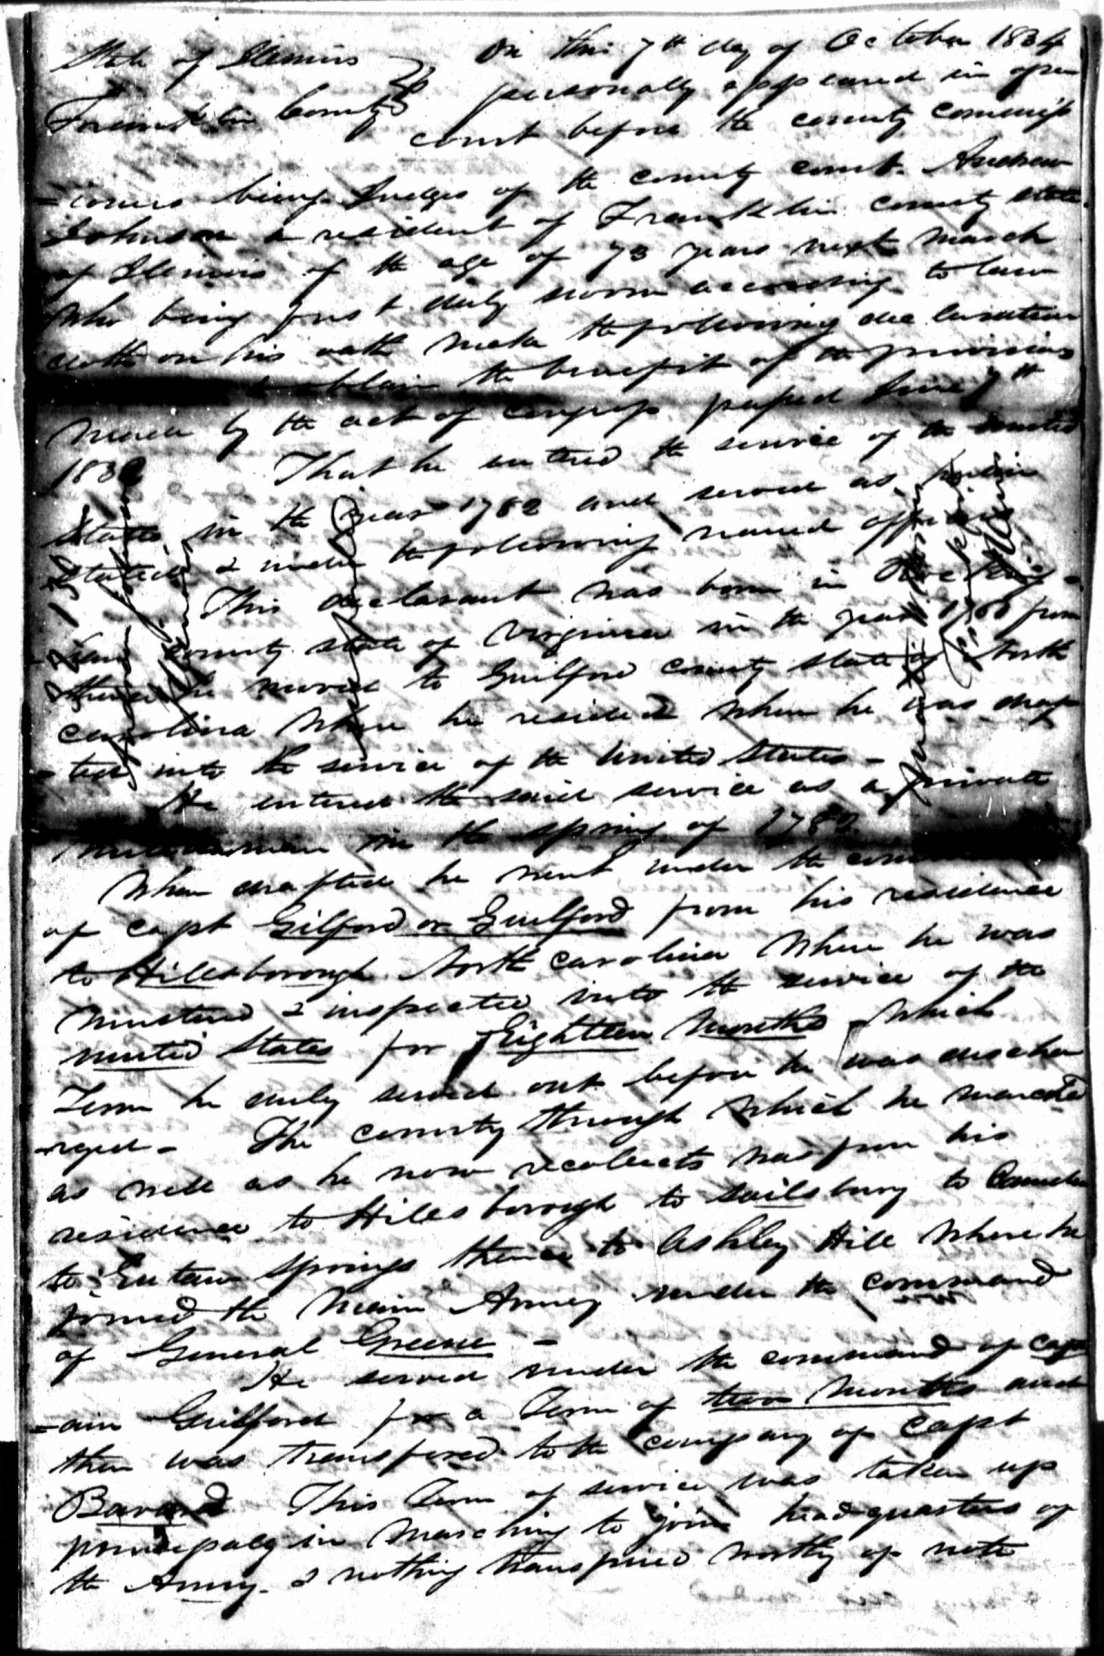 State of Illinois On this 7th day of October 1834
Franklin County personally appeared in open
court before the county commiss
=ioners being Judges of the county court. Andrew
Johnson a resident of Franklin county state
of Illinois of the age of 73 years next march
who being first duly sworn according to law
doth on his oath make the following declaration
to obtain the benefit of the provision
made by the act of congress passed June 7th
1832 That he entered the service of the United
States in the year 1782 and served as
stated & under the following named officers
This declarant was born in Rocking=
=ham county state of Virginia in the year from
thence he moved to Guilford county state of North
carolina where he resided when he was draf
=ted into the service of the United States -
He entered the said service as a private
militiaman in the spring of 1782.
When drafted he went under the
of capt Gilford or Guilford from his residence
to Hillsborough North carolina where he was
mustered & inspected into the service of the
united States for Eighteen Months which
Term he duly served out before he was discha
-rged - The country through which he marched
as well as he now recollects was from his
residence to Hillsborough to Sailsbury to Camden
to Eutaw Springs thence to Ashley Hill where he
joined the Main Army under the command
of General Greene -
He served under the command of capt
=ain Guilford for a Term of two Months and
then was transfered to the company of Capt
This Term of service was taken up
principaly in marching to join head quarters of
the Army - & nothing transpired worthy of note